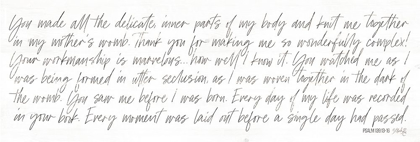 You made all the delicate, inner parts of my body and knit me together
in my mother's womb. Thank you for making me so wonderfully complex!
Your workmanship is marvelous... how well I know it. You watched me as I
was being formed in utter seclusion as I was woven together in the dark of
the womb. You saw me before I was born. Every day of my life was recorded
in your book. Every moment was laid out before a single day had passed.
PSALM 139:13-16